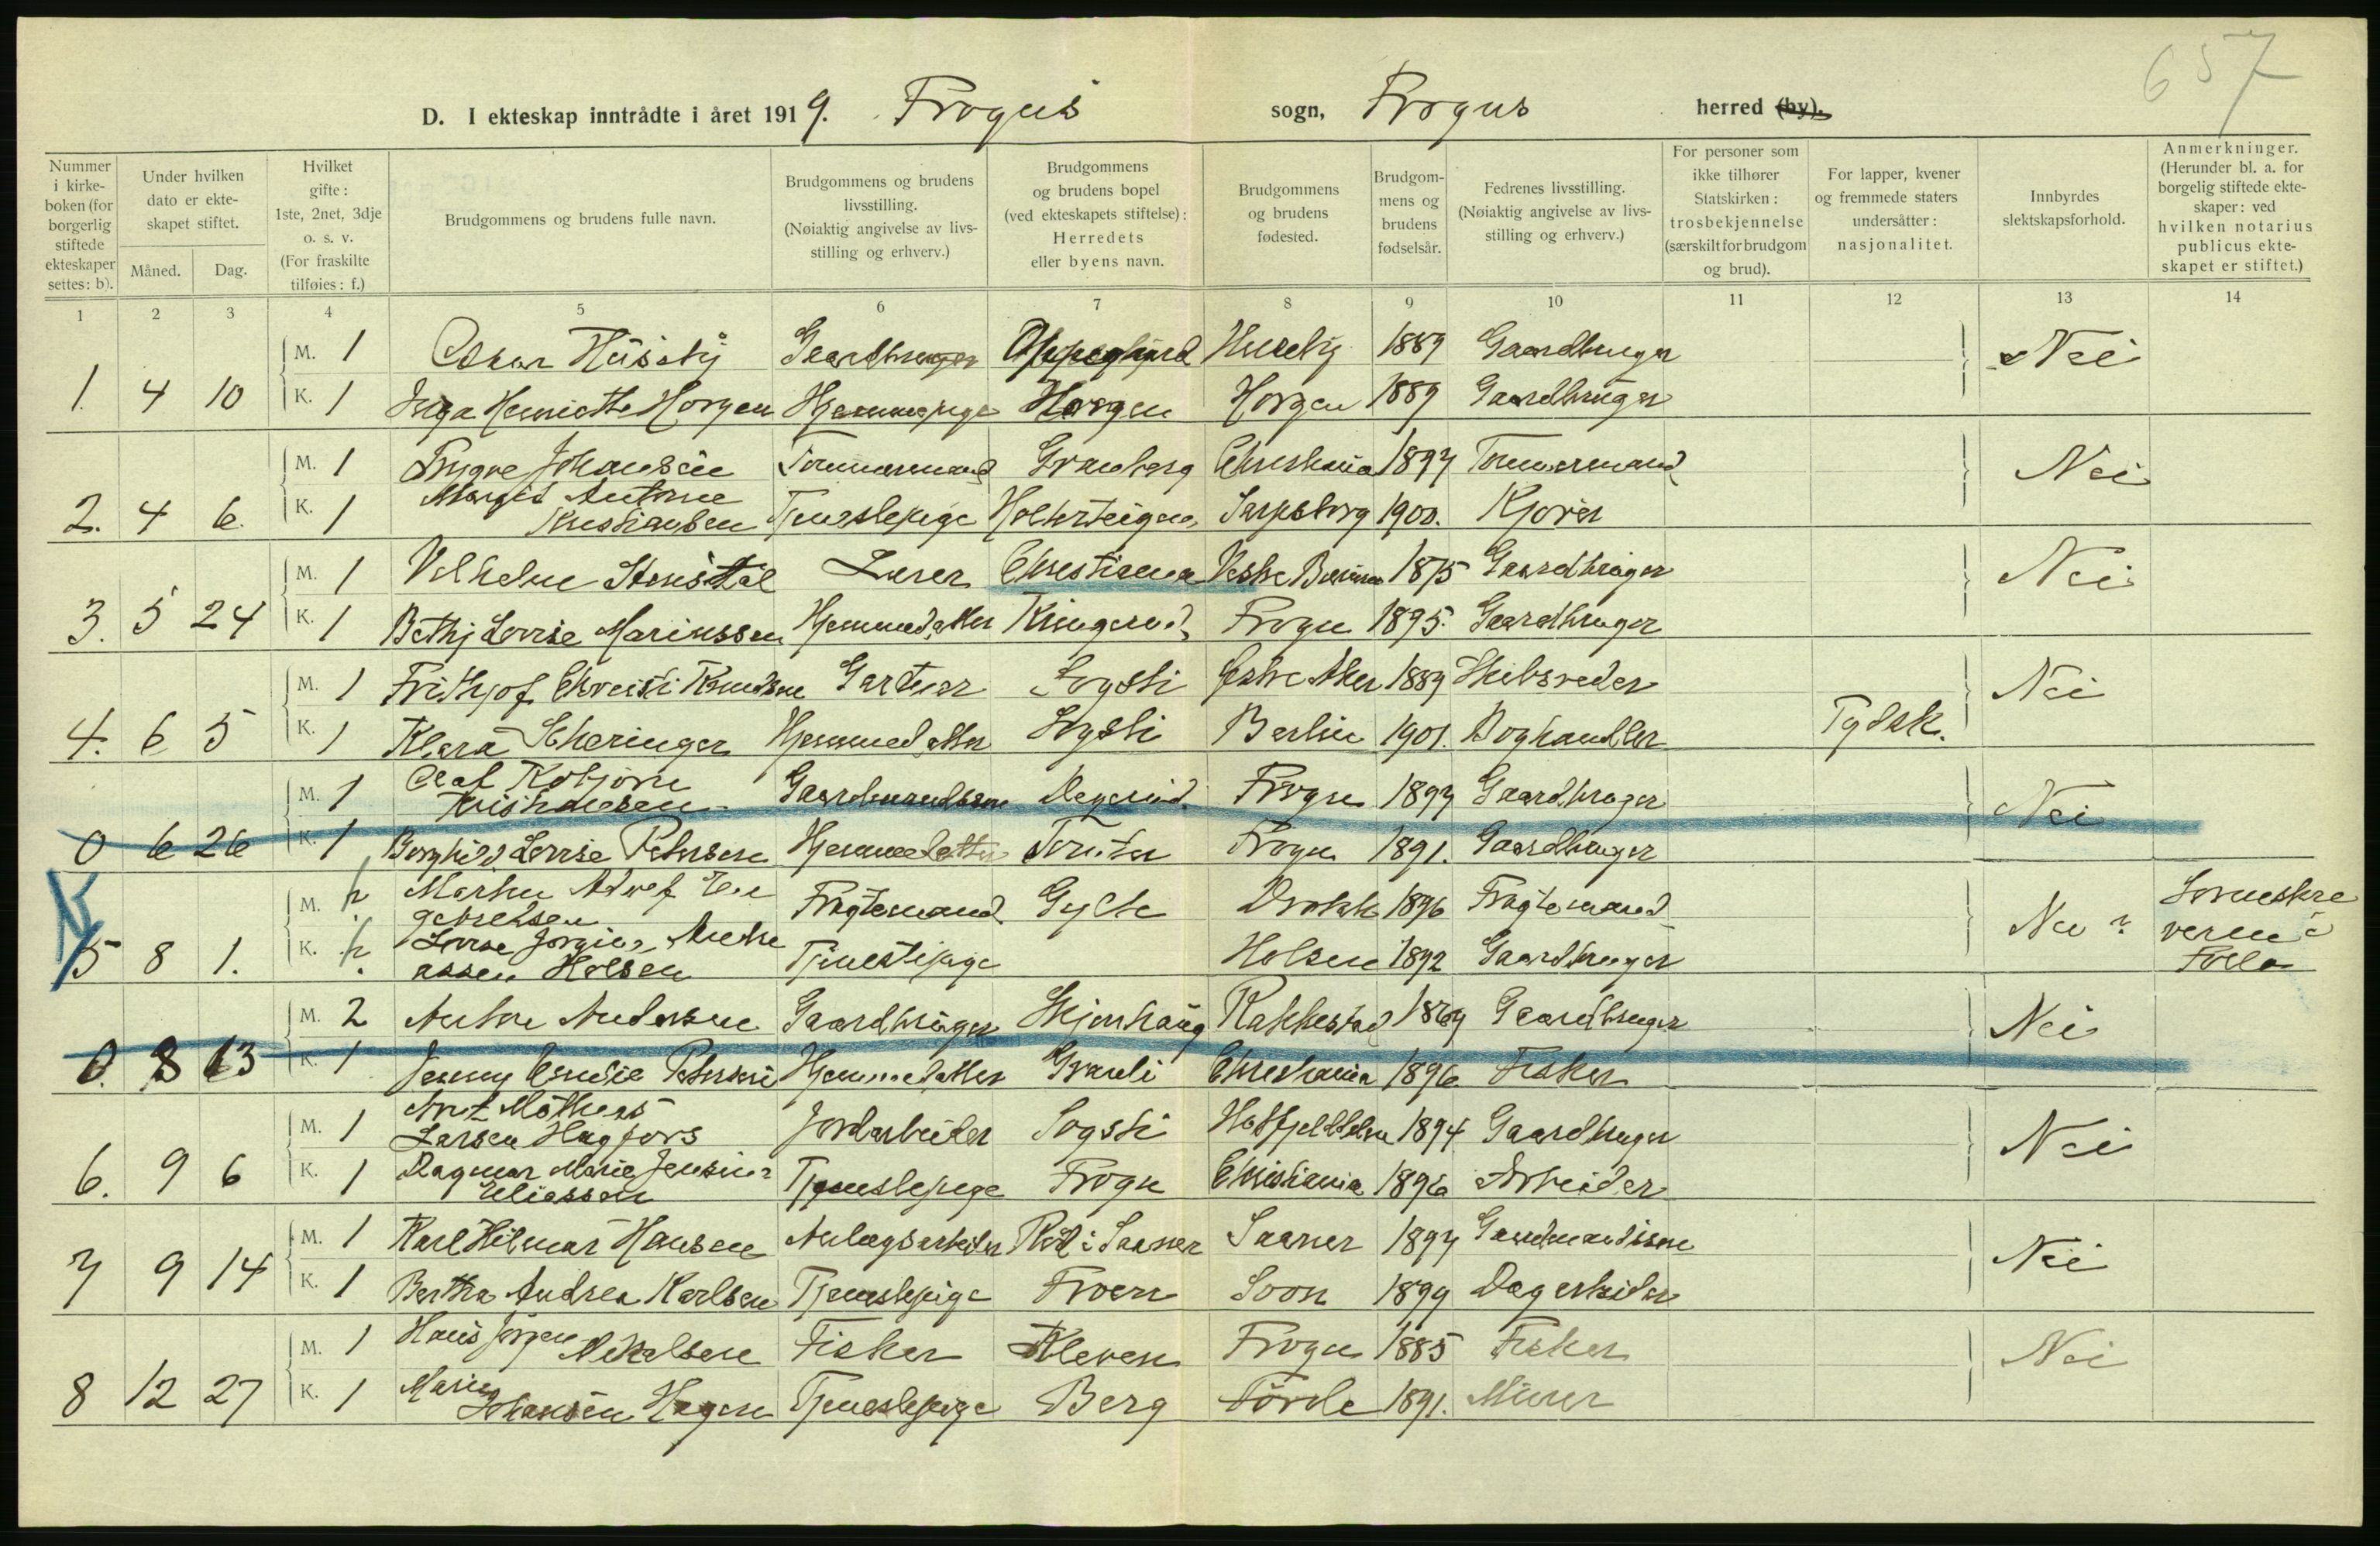 657
D. I ekteskap inntrådte i året 1919. Frogns sogn, Frogns herred (by).
Nummer i kirke- boken (for borgerlig stiftede ekteskaper settes: b).
Under hvilken dato er ekte- skapet stiftet.
Måned. Dag.
Hvilket gifte: 1ste, 2net, 3dje o. s. v. (For fraskilte tilføies: f.)
Brudgommens og brudens fulle navn.
Brudgommens og brudens livsstilling. (Nøiaktig angivelse av livs- stilling og erhverv.)
Brudgommens og brudens bopel (ved ekteskapets stiftelse): Herredets eller byens navn.
Brudgommens og brudens fødested.
Brudgom- mens og brudens fødselsår.
Fedrenes livsstilling. (Nøiaktig angivelse av livs- stilling og erhverv.)
For personer som ikke tilhører Statskirken: trosbekjennelse (særskilt for brudgom og brud).
For lapper, kvener og fremmede staters undersåtter: nasjonalitet.
Innbyrdes slektskapsforhold.
Anmerkninger. (Herunder bl. a. for borgelig stiftede ekte- skaper: ved hvilken notarius publicus ekte- skapet er stiftet.)
1 2 3 4 5 6 7 8 9 10 11 12 13 14
M. 1 Oskar Huseby Gaardbruger Oppegaard Huseby 1889 Gaardbruger Nei
1. 4 10 K. 1 Inga Henriette Horgen Hjemmepige Horgen Horgen 1889 Gaardbruger
M. 1 Trygve Johansen Tømmermand Granberg Christiania 1897 Tømmermand Nei
2. 4 6. K. 1 Margit Antonie Kristiansen Tjenestepige Holterteigen Sarpsborg 1900. Kjører
M. 1 Vilhelm Stensdal Lærer Christiania Vestre 1875 Gaardbruger Nei
3. 5 24 K. 1 Bethy Lovise Marinussen Hjemmedatter Ringerud Frogn 1895. Gaardbruger
M. 1 Frithjof Christi Knudsen Gartner Sogsti Østre Aker 1889 Skibsreder Nei
4. 6 5 K. 1 Klara Scheringer Hjemmedatter Sogsti Berlin 1901. Boghandler Tydsk.
M. 1 Olaf Kobjørn Kristiansen Gaardmandssøn Degerud Frogn 1897 Gaardbruger Nei
0 6 26 K. 1 Borghild Lovise Petersen Hjemmedatter Frogn 1891. Gaardbruger
M. ? Martin Adolf Engebretsen Fragtemand Gylte Drøbak 1896 Fragtemand Nei ? Sorenskriveren i Follo
5 8 1. K. ? Lovise Jorgine Andreassen Holsen Tjenestepige Holsen 1892 Gaardbruger
M. 2 Anton Andersen Gaardbruger Skjønhaug Rakkestad 1869 Gaardbruger Nei
0. 8 13 K. 1 Jenny Emilie Petersen Hjemmedatter Granli Christiania 1896 Fisker
M. 1 Arnt Matheas Larsen Hagfors Jordarbeider Sogsti Hatfjelddalen 1894 Gaardbruger Nei
6. 9 6 K. 1 Dagmar Marie Jensine Eliassen Tjenestepige Frogn Christiania 1896 Arbeider
M. 1 Karl Hilmar Hansen Anlægsarbeider Rød i Saaner Saaner 1897 Gaardmandssøn Nei
7 9 14 K. 1 Bertha Andrea Karlsen Tjenestepige Froen Soon 1899 Dagarbeider
M. 1 Hans Jørgen Nikolsen Fisker Kleven Frogn 1885 Fisker Nei
8 12 27 K. 1 Marie Johansen Hagen Tjenestepige Berg Førde 1891. Murer